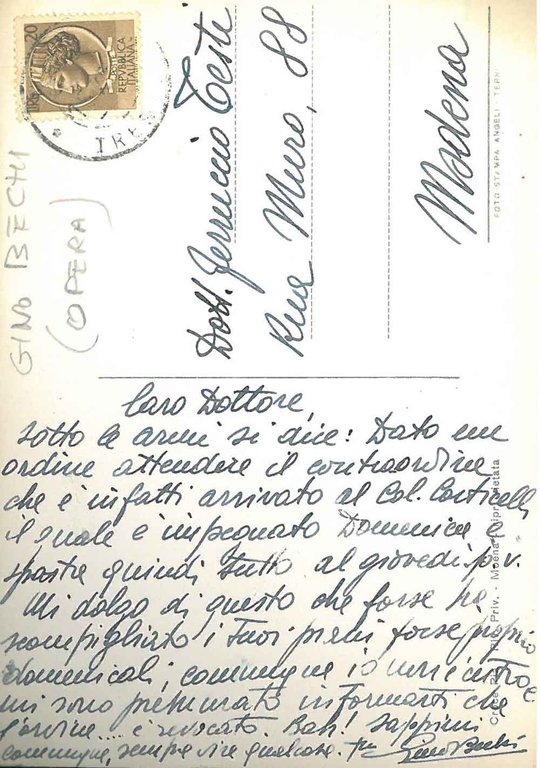 20
POSTE
REPVBBLICA
ITALIANA
LIRE
GINO BECHI
(OPERA)
Dott. Ferruccio Testi
Rua Muro, 88
Modena
FOTO STAMPA ANGELI TERNI
Caro Dottore,
sotto le armi si dice: Dato un
ordine attendere il contraordine
che è infatti arrivato al Col. Corticelli
il quale è impegnato Domenica
quindi tutto al giovedì p.v.
Mi dolgo di questo che forse ha
scompigliato i tuoi piani forse proprio
domenicali, comunque io
mi sono premurato informarti che
l'ordine... è revocato. Baci! Sappimi
comunque, sempre dire qualcosa. tuo Gino Bechi
Priv. - Moena Riprod. vietata